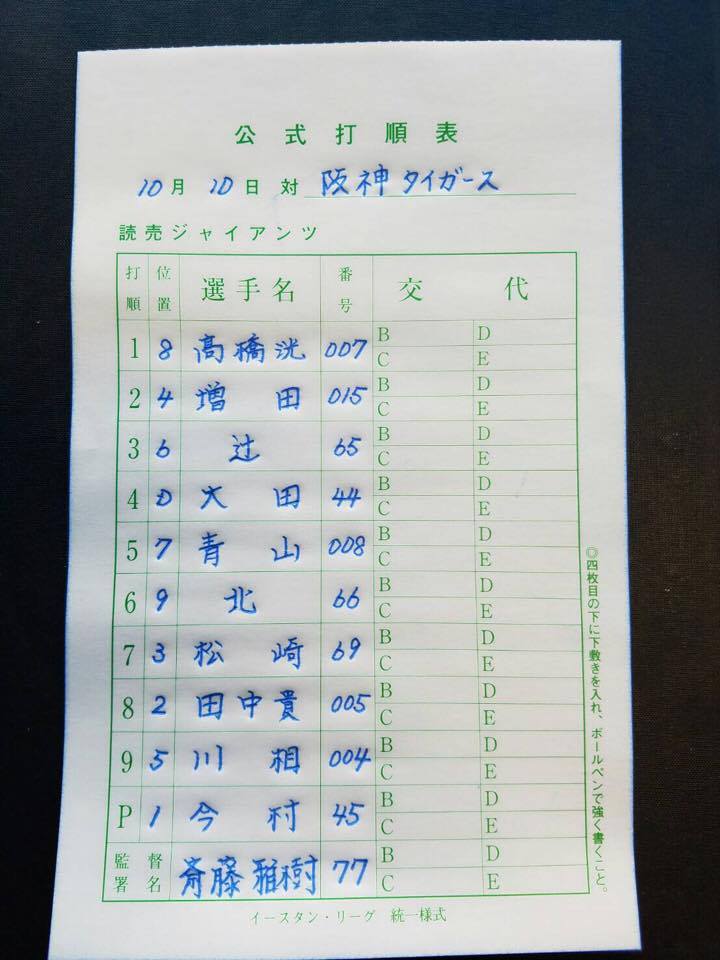 公式打順表
10月 10日 対 阪神タイガース
読売ジャイアンツ
打順 位置 選手名 番号 交代
1 8 高橋洸 007 B D C E
2 4 増田 015 B D C E
3 6 辻 65 B D C E
4 D 大田 44 B D C E
5 7 青山 008 B D C E
6 9 北 66 B D C E
7 3 松崎 69 B D C E
8 2 田中貴 005 B D C E
9 5 川相 004 B D C E
P 1 今村 45 B D C E
監督署名 斎藤雅樹 77 B D C E
イースタン・リーグ 統一様式
◎四枚目の下に下敷きを入れ、ボールペンで強く書くこと。